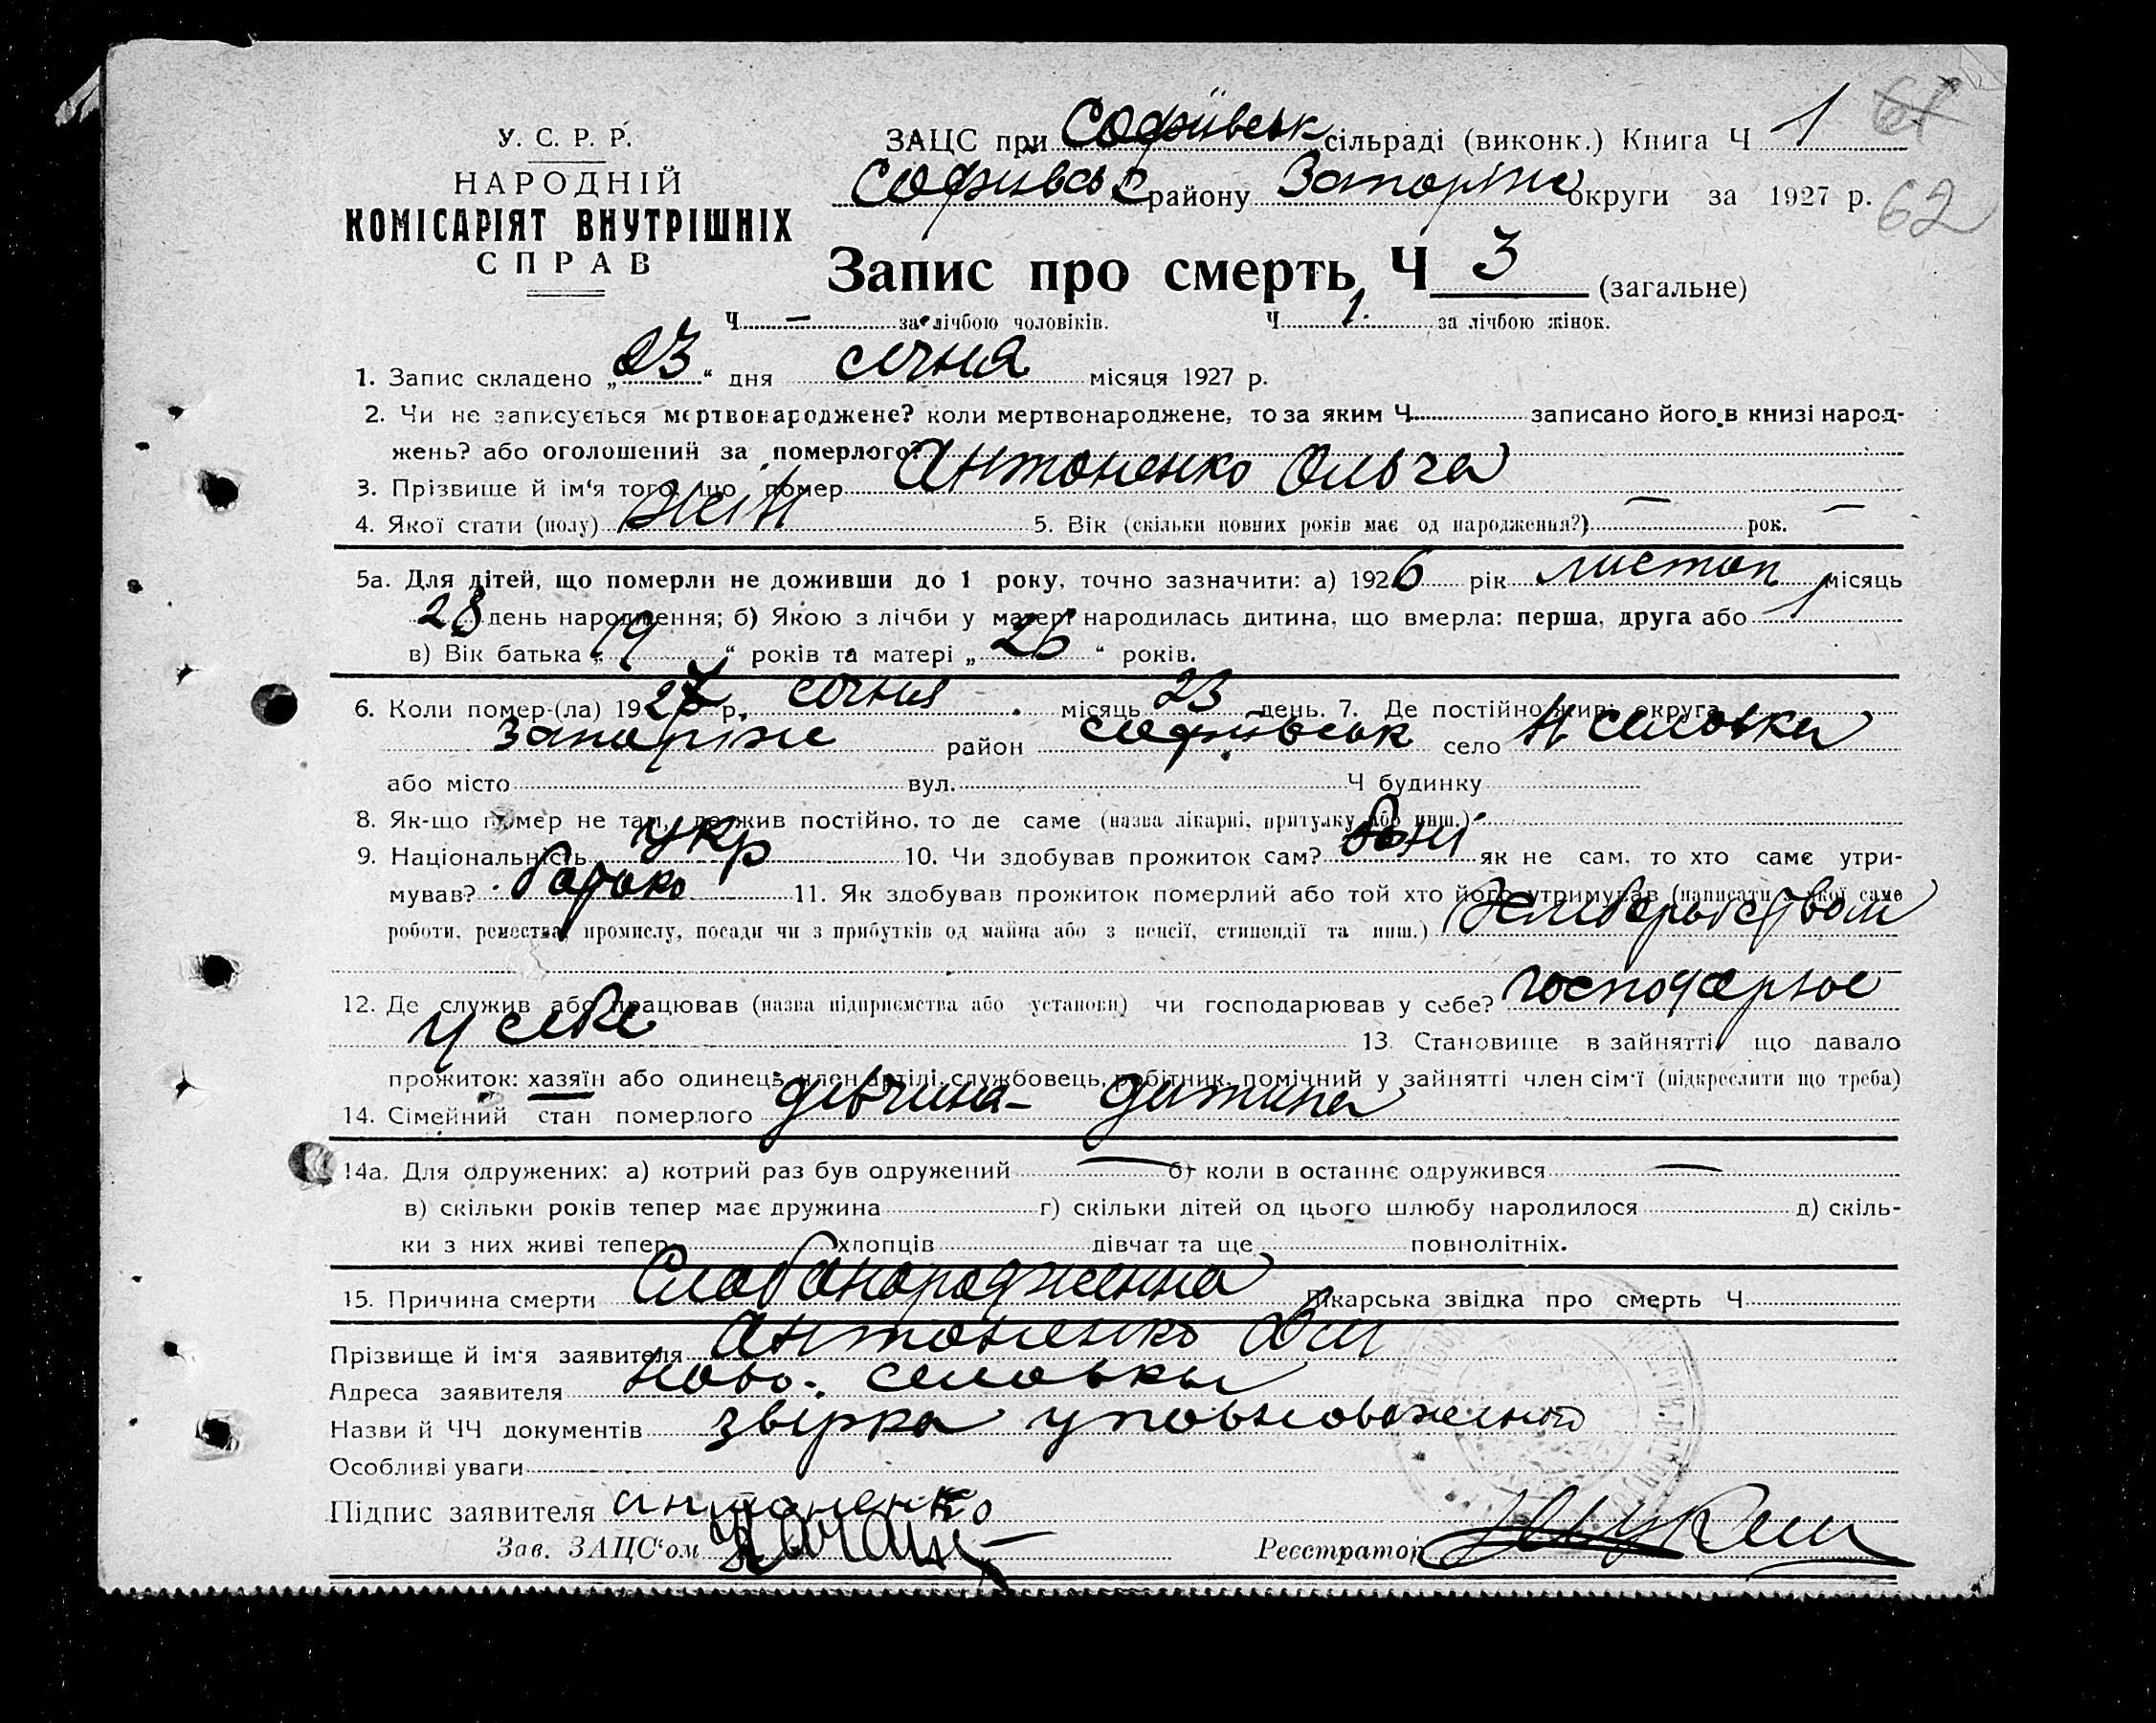 61
У. С. Р. Р.
НАРОДНІЙ
КОМІСАРІЯТ ВНУТРІШНІХ
СПРАВ
ЗАЦС при Софіївськ сільраді (виконк.) Книга Ч 1
Софіївськ району Запоріж округи за 1927 р.
62
Запис про смерть Ч 3 (загальне)
Ч — за лічбою чоловіків. Ч 1. за лічбою жінок.
1. Запис складено „ 23 “ дня січня місяця 1927 р.
2. Чи не записується мертвонароджене? коли мертвонароджене, то за яким Ч записано його в книзі народ-
жень? або оголошений за померлого?
3. Прізвище й ім‘я того, що помер Антоненко Ольга
4. Якої стати (полу) жін 5. Вік (скільки повних років має од народження?) — рок. —
5а. Для дітей, що померли не доживши до 1 року, точно зазначити: а) 1926 рік листоп місяць
28 день народження; б) Якою з лічби у матері народилась дитина, що вмерла: перша, друга або 1
в) Вік батька „ 19 “ років та матері „ 26 “ років.
6. Коли помер-(ла) 1927 р. січня місяць 23 день. 7. Де постійно жив: округа
Запоріж район Софіївськ село Н.Селовка
або місто вул. Ч будинку
8. Як-що помер не там, де жив постійно, то де саме (назва лікарні, притулку або инш.)
9. Національність укр 10. Чи здобував прожиток сам? як не сам, то хто саме утри-
мував? батько 11. Як здобував прожиток померлий або той хто його утримував (написати з якої саме
роботи, ремества, промислу, посади чи з прибутків од майна або з пенсії, стипендії та инш.)
12. Де служив або працював (назва підприємства або установи) чи господарював у себе? господарює
у себе 13. Становище в зайнятті, що давало
прожиток: хазяїн або одинець, член артілі, службовець, робітник, помічний у зайнятті член сім‘ї (підкреслити що треба)
14. Сімейний стан померлого дівчина - дитина
14а. Для одружених: а) котрий раз був одружений — б) коли в останнє одружився —
в) скільки років тепер має дружина г) скільки дітей од цього шлюбу народилося д) скіль-
ки з них живі тепер хлопців дівчат та ще повнолітніх.
15. Причина смерти Слабонародженна Лікарська звідка про смерть Ч
Прізвище й ім‘я заявителя Антоненко
Адреса заявителя Ново-Селовка
Назви й ЧЧ документів звірка уповноваженого
Особливі уваги
Підпис заявителя антоненко
Зав. ЗАЦС‘ом
Реєстратор